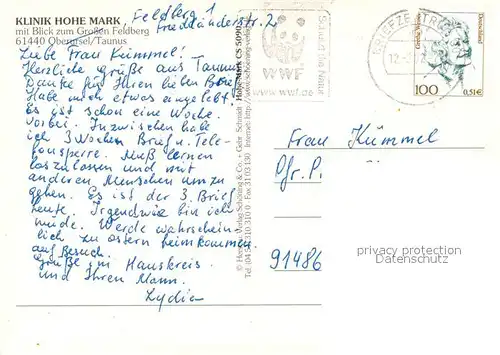 KLINIK HOHE MARK
mit Blick zum Großen Feldberg
61440 Oberursel/Taunus
Feldberg 1
Friedländerstr. 2
Liebe Frau Kümmel!
Herzliche grüße aus Taunus
Danke für Ihren lieben Brief
Habe mich etwas eingelebt.
Es ist schon eine Woche
vorbei. Inzwischen habe
ich 3 Wochen Brief u. Tele-
fonsperre. Muß lernen
loszulassen und mit
anderen Menschen umzu
gehen. Es ist der 3. Brief
heute. Irgendwie bin ich
müde. Werde wahrschein-
lich zu Ostern heimkommen
auf Besuch.
Grüße im Hauskreis
und Ihren Mann.
Lydia
Schützt die Natur
WWF
www.wwf.de
BRIEFZENTRUM
Deutschland
100
0,51€
Frau Kümmel
Gr. P.
91486
privacy protection
Datenschutz